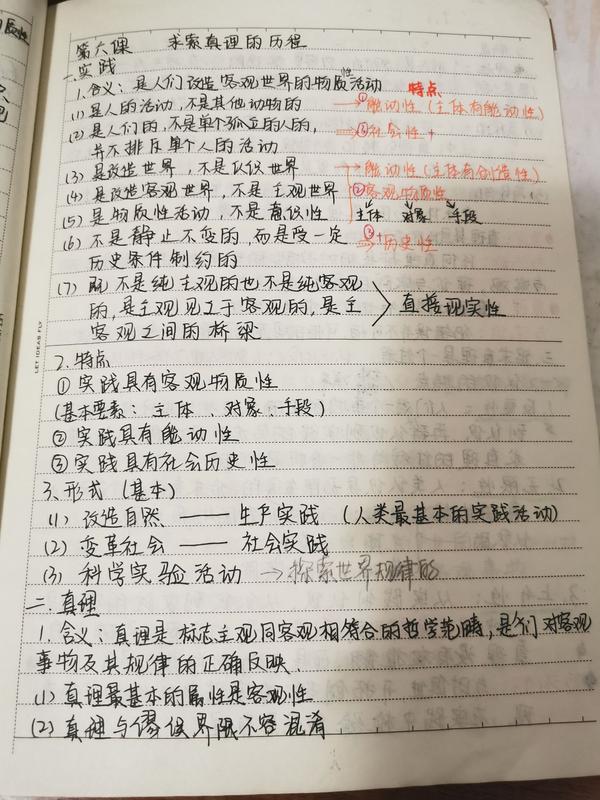 第六课 求索真理的历程
一.实践
1.含义:是人们改造客观世界的物质性活动 特点
(1)是人的活动,不是其他动物的 → ①能动性(主体有能动性)
(2)是人们的,不是单个孤立的人的, → ③社会性 +
并不排斥单个人的活动
(3)是改造世界,不是认识世界 → 能动性(主体有创造性)
(4)是改造客观世界,不是主观世界 ②客观物质性
(5)是物质性活动,不是意识性 主体 对象 手段
(6)不是静止不变的,而是受一定 → ③+历史性
历史条件制约的
(7)既不是纯主观的也不是纯客观
的,是主观见之于客观的,是主 直接现实性
客观之间的桥梁
2.特点
①实践具有客观物质性
(基本要素:主体、对象、手段)
②实践具有能动性
③实践具有社会历史性
3.形式(基本)
(1)改造自然 —— 生产实践(人类最基本的实践活动)
(2)变革社会 —— 社会实践
(3)科学实验活动 → 探索世界规律的
二.真理
1.含义:真理是标志主观同客观相符合的哲学范畴,是人们对客观
事物及其规律的正确反映.
(1)真理最基本的属性是客观性
(2)真理与谬误界限不容混淆
LET IDEAS FLY